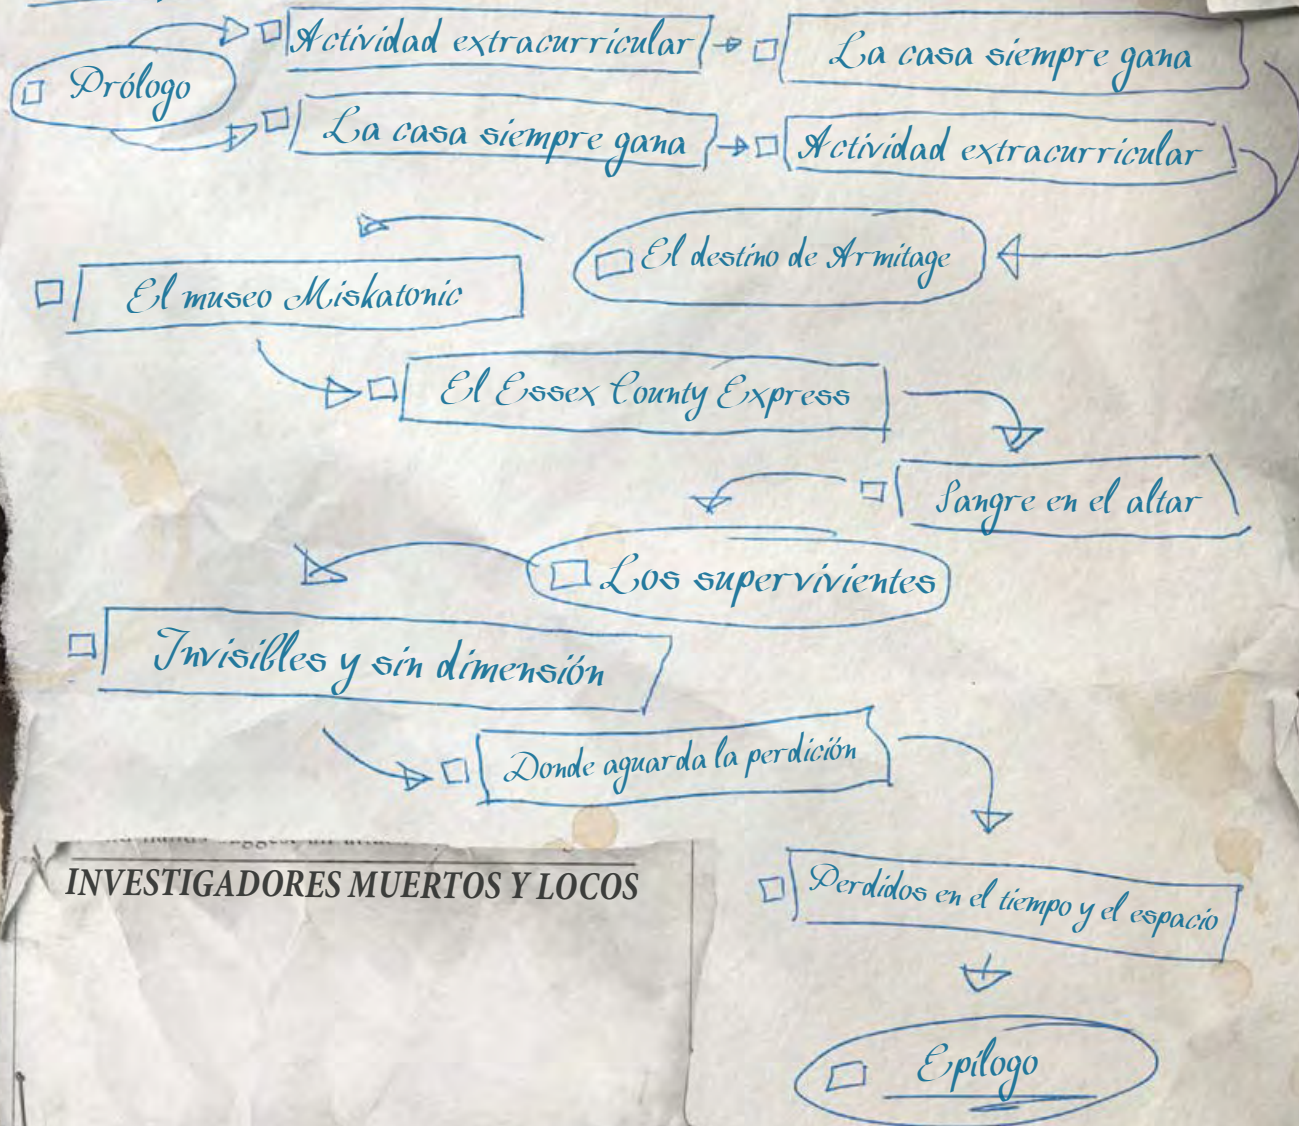 Prólogo
Actividad extracurricular
La casa siempre gana
La casa siempre gana
Actividad extracurricular
El destino de Armitage
El museo Miskatonic
El Essex County Express
Sangre en el altar
Los supervivientes
Invisibles y sin dimensión
Donde aguarda la perdición
INVESTIGADORES MUERTOS Y LOCOS
Perdidos en el tiempo y el espacio
Epílogo